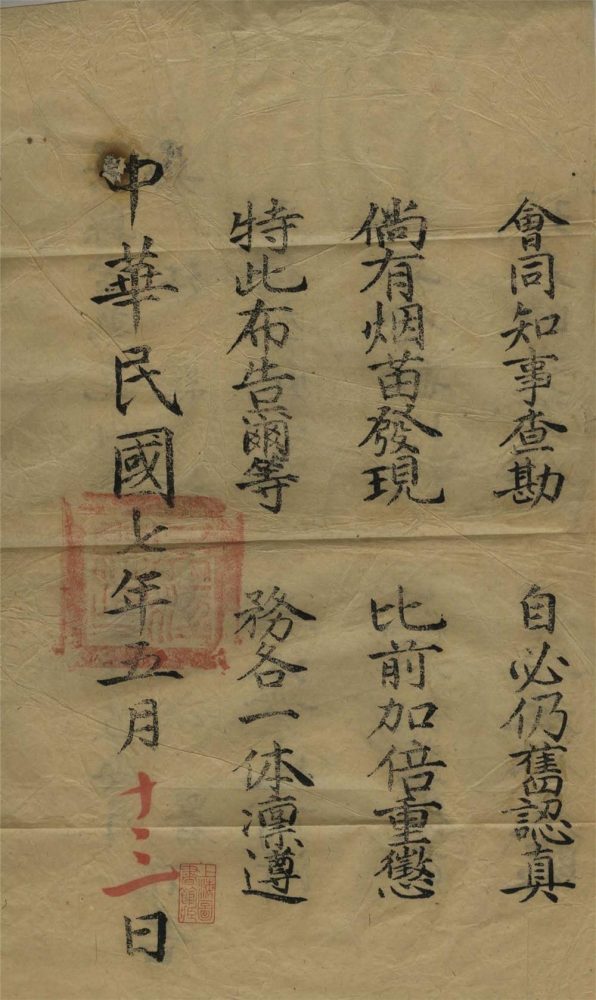 會同知事查勘 自必仍舊認真
倘有烟苗發現 比前加倍重懲
特此布告爾等 務各一体凛遵
中華民國七年五月十二日
上海圖
書館藏